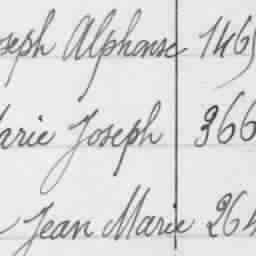 oseph Alphonse 1465
arie Joseph 366
Jean Marie 264